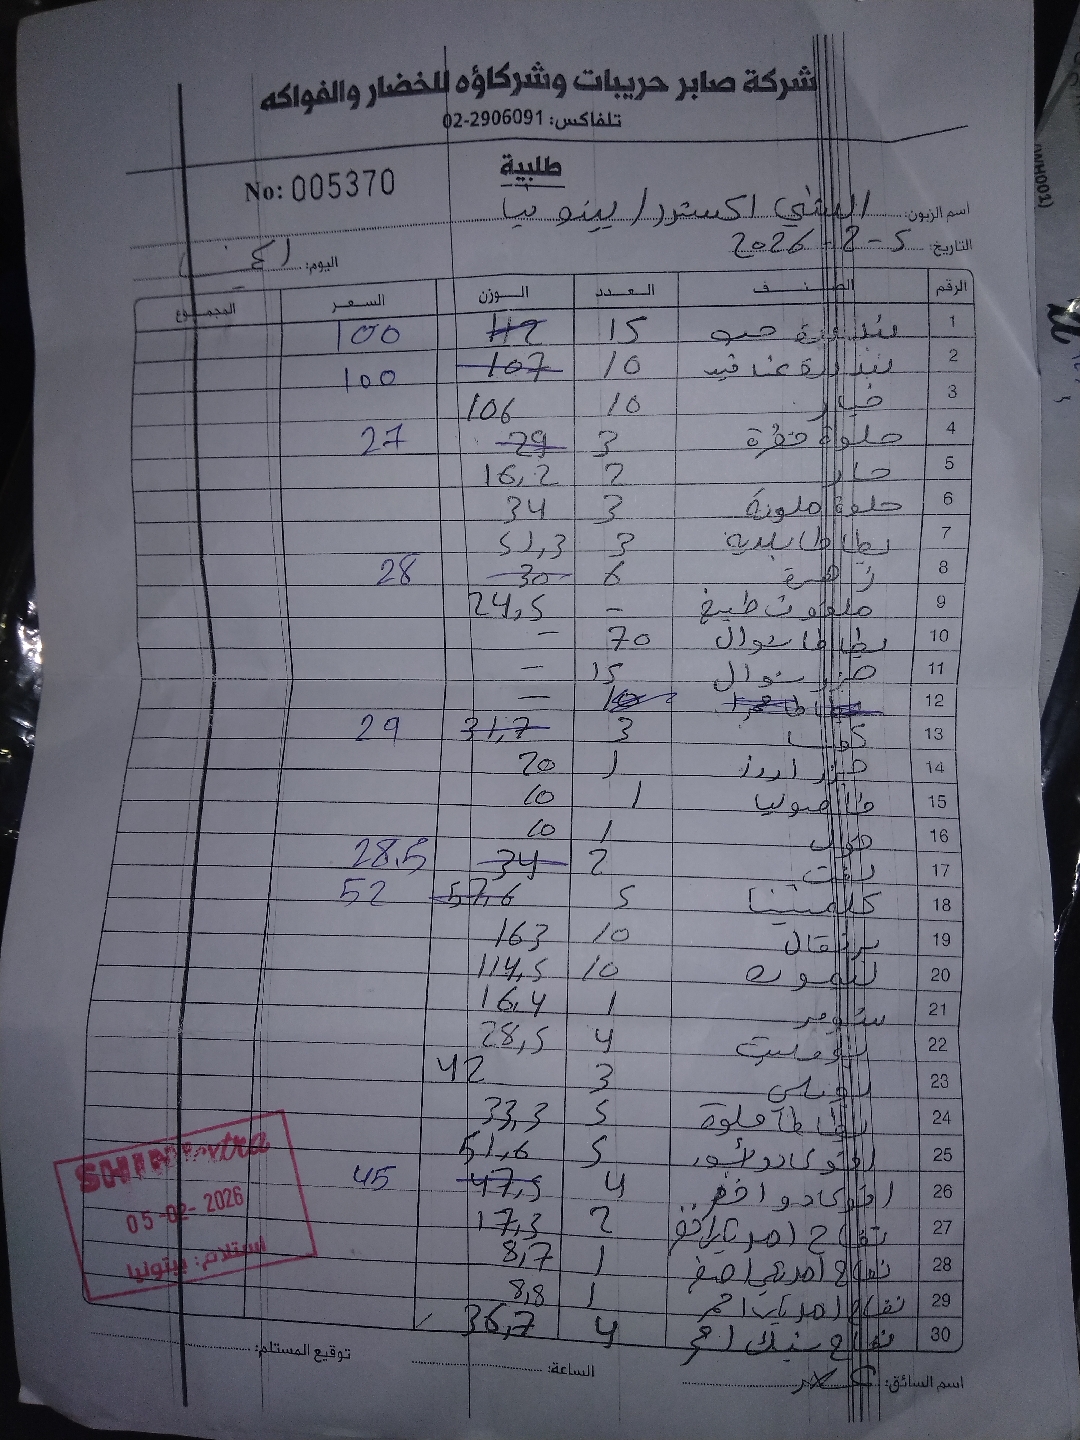 شركة صابر حريبات وشركاؤه للخضار والفواكه
تلفاكس: 02-2906091
طلبية
No: 005370
اسم الزبون: الشني اكسترا / بيتونيا
التاريخ: 5-2-2026 اليوم:
الرقم الصنف العدد الوزن السعر المجموع
1 بندورة حب 15 112 100
2 بندورة عناقيد 10 107 100
3 خيار 10 106
4 حلوة خضرة 3 29 27
5 حار 2 16,2
6 حلوة ملونة 3 34
7 بطاطا بلدية 3 51,3
8 زهرة 6 30 28
9 ملفوف طبيخ - 24,5
10 بطاطا شوال 70 -
11 جزر شوال 15 -
12 10 -
13 كوسا 3 31,7 29
14 جزر 1 20
15 فاصوليا 1 10
16 فول 1 10
17 لفت 2 34 28.5
18 كلمنتينا 5 57,6 52
19 برتقال 10 163
20 ليمون 10 114,5
21 1 16,4
22 4 28,5
23 3 42
24 بطاطا حلوة 5 33,3
25 افوكادو 5 51,6
26 افوكادو اخضر 4 47,5 45
27 تفاح اخضر 2 17,3
28 تفاح اصفر 1 8,7
29 تفاح احمر 1 8,8
30 تفاح بينك 4 36,7
SHINI extra
05-02-2026
استلام: بيتونيا
توقيع المستلم:
الساعة:
اسم السائق: